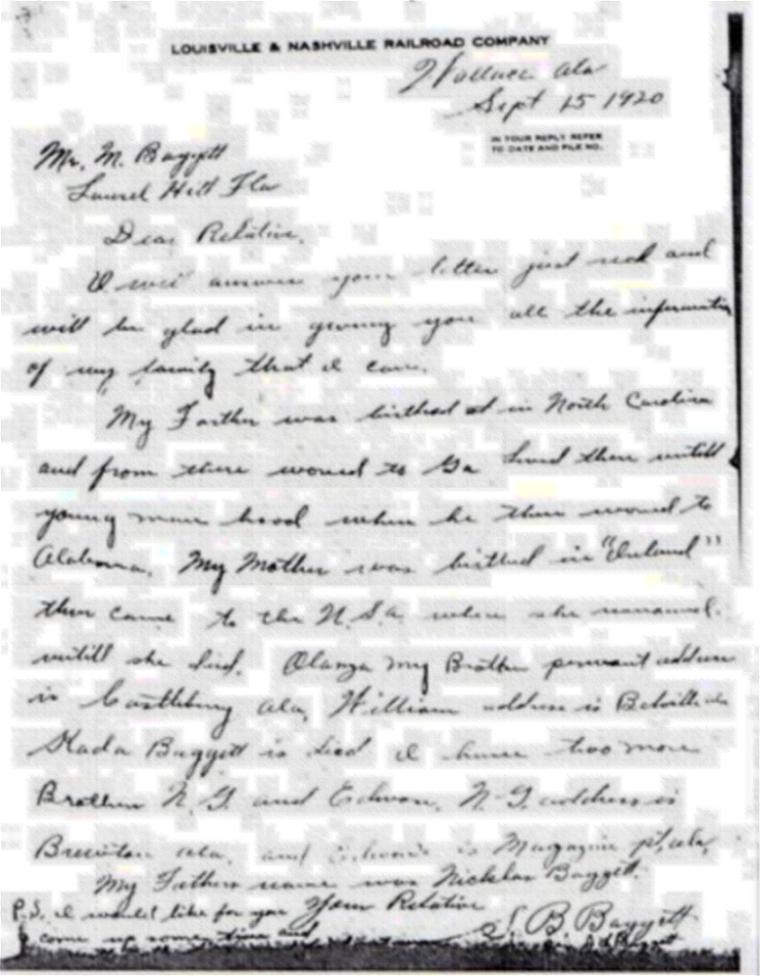 LOUISVILLE & NASHVILLE RAILROAD COMPANY
Wallace Ala
Sept 15 1920
IN YOUR REPLY REFER
TO DATE AND FILE NO.
Mr. M. Baggett
Laurel Hill Fla
Dear Relative.
I will answer your letter just recd and
will be glad in giving you all the information
of my family that I can.
My Farther was birthed at in North Carolina
and from there moved to Ga lived there untill
young man hood when he then moved to
Alabama. My Mother was birthed in "Ireland"
then came to the U.S.A. where she remained
untill she died. Olanza my Brother permant address
is Castleberry Ala, William address is Belville ala
Kada Baggett is died I have two more
Brothers N. G. and Edwon. N. G. address is
Brewton ala, and Edwon's is Magazine pt, ala,
My Fathers name was Nickolas Baggett.
P.S. I would like for you Your Relative
to come up some time and S. B. Baggett